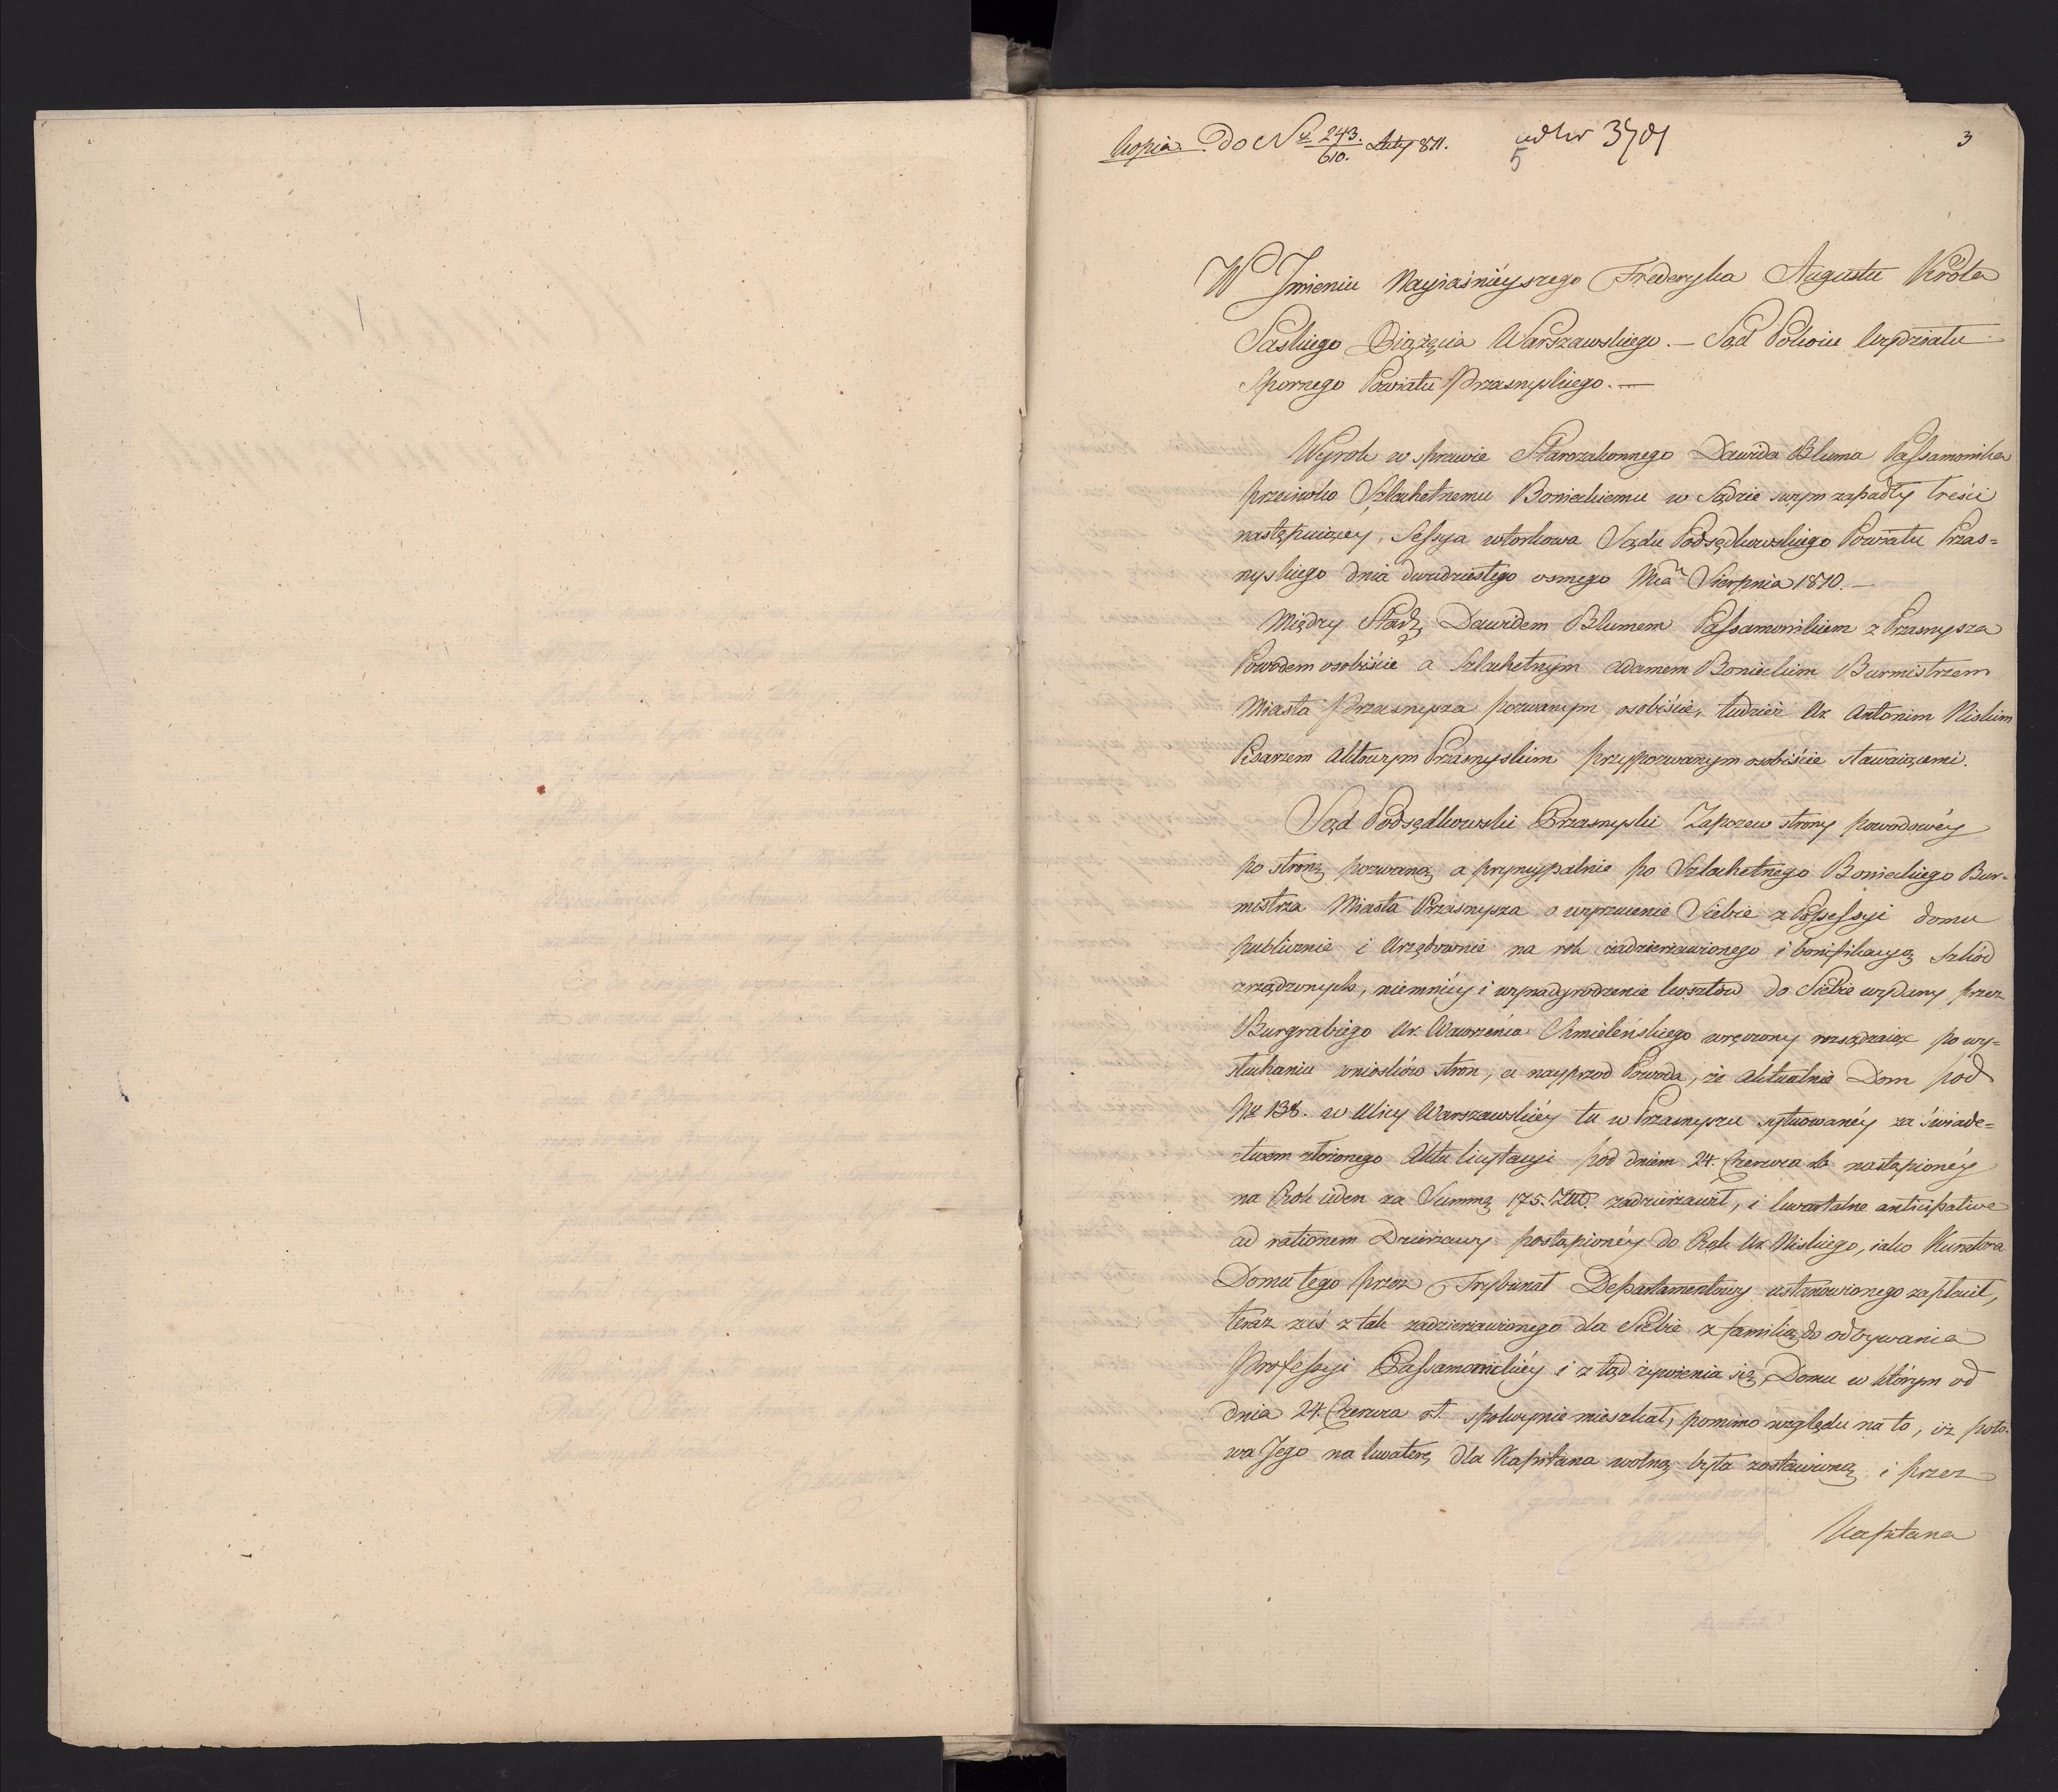 Kopia. Do Nr 243./610. Luty 811. ad Nr 3701
5
3
W Jmieniu Nayiaśnieyszego Frederyka Augusta Króla
Saskiego Xiążęcia Warszawskiego. — Sąd Pokoiu Wydziału
Spornego Powiatu Przasnyskiego. —
Wyrok w sprawie Starozakonnego Dawida Bluma Passamonika
przeciwko Szlachetnemu Bonieckiemu w Sądzie swym zapadły treści
następuiącey, Sessya wtorkowa Sądu Podsędkowskiego Powiatu Przas=
nyskiego dnia dwudziestego osmego Mca Sierpnia 1810. —
Między Starz. Dawidem Blumem Passamonikiem z Przasnysza
Powodem osobiście a Szlachetnym Adamem Bonieckim Burmistrzem
Miasta Przasnysza pozwanym osobiście, tudzież Ur. Antonim Niskim
Pisarzem Aktowym Przasnyskim przypozwanym osobiście stawaiącemi.
Sąd Podsędkowski Przasnyski Zapozew strony powodowéy
po stronę pozwaną a pryncypalnie po Szlachetnego Bonieckiego Bur=
mistrza Miasta Przasnysza o wyrzucenie Siebie z Possessyi domu
publicznie i Urzędownie na rok zadzierzawionego i bonifikacyą szkód
zrządzonych, niemniéy i wynadgrodzenie kosztów do Siebie wydany przez
Burgrabiego Ur. Wawrzeńca Chmieleńskiego wręczony rozsądzaiąc po wy=
słuchaniu wniosków stron, a nayprzod Powoda, że Aktualnie Dom pod
Nr 138. w Ulicy Warszawskiéy tu w Przasnyszu sytuowanéy za świade=
ctwem złożonego Aktu licytacyi pod dniem 24. Czerwca rb nastąpionéy
na Rok ieden za Summę 175. Złt. zadzierzawił, i kwartalne anticipative
ad rationem Dzierżawy postąpionéy do Rąk Ur. Niskiego, iako Kuratora
Domu tego przez Trybunał Departamentowy ustanowionego zapłacił,
teraz zaś z tak zadzierzawionego dla Siebie z familią do odbywania
Professyi Passamonickiéy i z tąd żywienia się Domu w którym od
dnia 24. Czerwca rb. spokoynie mieszkał, pomimo względu na to, iż poło-
wa Jego na kwaterę dla Kapitana wolną była zostawioną i przez
Kapitana